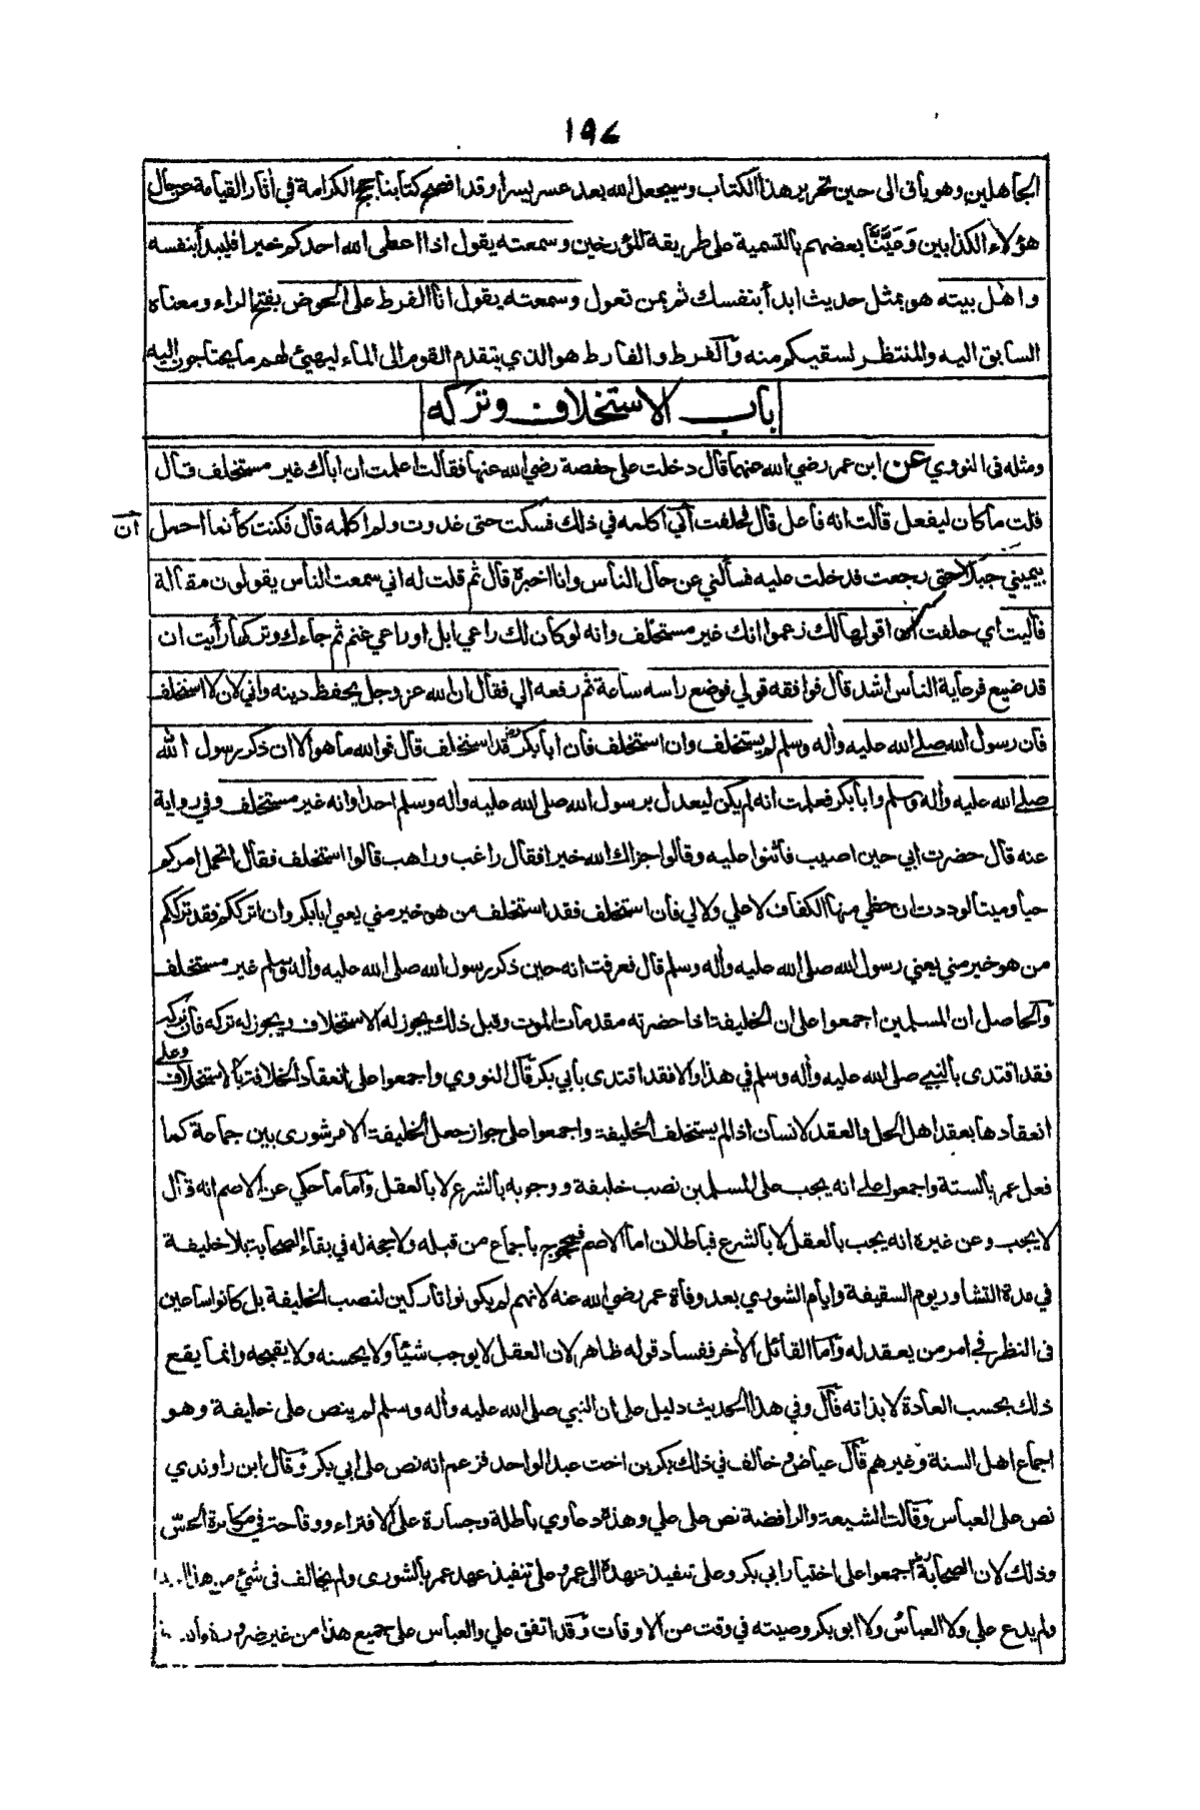 ١٩٤
الجاهلين وهو باق الى حين تحرير هذا الكتاب وسيجعل الله بعد عسر يسرا وقد افصح كتابنا حجج الكرامة في اثار القيامة عن حال
هؤلاء الكذابين وَعَيَّنَّا بعضهم بالتسمية على طريقة المؤرخين وسمعته يقول اذا اعطى الله احدكم خيرا فليبدأ بنفسه
واهل بيته هو بمثل حديث ابدأ بنفسك ثم بمن تعول وسمعته يقول انا الفرط على الحوض بفتح الراء ومعناه
السابق اليه والمنتظر لسقيكم منه والفرط والفارط هو الذي يتقدم القوم الى الماء ليهيئ لهم ما يحتاجون اليه
باب الاستخلاف وتركه
ومثله في النووي عن ابن عمر رضي الله عنهما قال دخلت على حفصة رضي الله عنها فقالت اعلمت ان اباك غير مستخلف قال
قلت ما كان ليفعل قالت انه فاعل قال فحلفت اني اكلمه في ذلك فسكت حتى غدوت ولم اكلمه قال فكنت كأنما احمل
ان
بيميني جبلا حتى رجعت فدخلت عليه فسألني عن حال الناس وانا اخبره قال ثم قلت له اني سمعت الناس يقولون مقالة
فآليت اي حلفت ان اقولها لك زعموا انك غير مستخلف وانه لو كان لك راعي ابل او راعي غنم ثم جاءك وتركها رأيت ان
قد ضيع فرعاية الناس اشد قال فوافقه قولي فوضع راسه ساعة ثم رفعه الي فقال ان الله عز وجل يحفظ دينه واني لان لا استخلف
فان رسول الله صلى الله عليه واله وسلم لم يستخلف وان استخلف فان ابا بكر رض قد استخلف قال فوالله ما هو الا ان ذكر رسول الله
صلى الله عليه واله وسلم وابا بكر فعلمت انه لم يكن ليعدل برسول الله صلى الله عليه واله وسلم احدا وانه غير مستخلف وفي رواية
عنه قال حضرت ابي حين اصيب فاثنوا عليه وقالوا جزاك الله خيرا فقال راغب وراهب قالوا استخلف فقال اتحمل امركم
حيا وميتا لوددت ان حظي منها الكفاف لا علي ولا لي فان استخلف فقد استخلف من هو خير مني يعني ابا بكر وان اترككم فقد ترككم
من هو خير مني يعني رسول الله صلى الله عليه واله وسلم قال فعرفت انه حين ذكر رسول الله صلى الله عليه واله وسلم غير مستخلف
والحاصل ان المسلمين اجمعوا على ان الخليفة اذا حضرته مقدمات الموت وقبل ذلك يجوز له الاستخلاف ويجوز له تركه فان تركه
فقد اقتدى بالنبي صلى الله عليه واله وسلم في هذا والا فقد اقتدى بابي بكر قال النووي واجمعوا على انعقاد الخلافة بالاستخلاف وعلى
انعقادها بعقد اهل الحل والعقد لانسان اذا لم يستخلف الخليفة واجمعوا على جواز جعل الخليفة الامر شورى بين جماعة كما
فعل عمر بالستة واجمعوا على انه يجب على المسلمين نصب خليفة ووجوبه بالشرع لا بالعقل واما ما حكي عن الاصم انه قال
لا يجب وعن غيره انه يجب بالعقل لا بالشرع فباطلان اما الاصم فمحجوج باجماع من قبله ولا حجة له في بقاء الصحابة بلا خليفة
في مدة التشاور يوم السقيفة وايام الشورى بعد وفاة عمر رضي الله عنه لانهم لم يكونوا تاركين لنصب الخليفة بل كانوا ساعين
في النظر في امر من يعقد له واما القائل الأخر ففساد قوله ظاهر لان العقل لا يوجب شيئا ولا يحسنه ولا يقبحه وانما يقع
ذلك بحسب العادة لا بذاته قال وفي هذا الحديث دليل على ان النبي صلى الله عليه واله وسلم لم ينص على خليفة وهو
اجماع اهل السنة وغيرهم قال عياض وخالف في ذلك بكر بن اخت عبد الواحد فزعم انه نص على ابي بكر وقال ابن راوندي
نص على العباس وقالت الشيعة والرافضة نص على علي وهذه دعاوي باطلة وجسارة على الافتراء ووقاحة في مكابرة الحسّ
وذلك لان الصحابة رض اجمعوا على اختيار ابي بكر وعلى تنفيذ عهده الى عمر وعلى تنفيذ عهد عمر بالشورى ولم يخالف في شيء من هذا
ولم يدع علي ولا العباس ولا ابو بكر وصيته في وقت من الاوقات وقد اتفق علي والعباس على جميع هذا من غير ضرورة